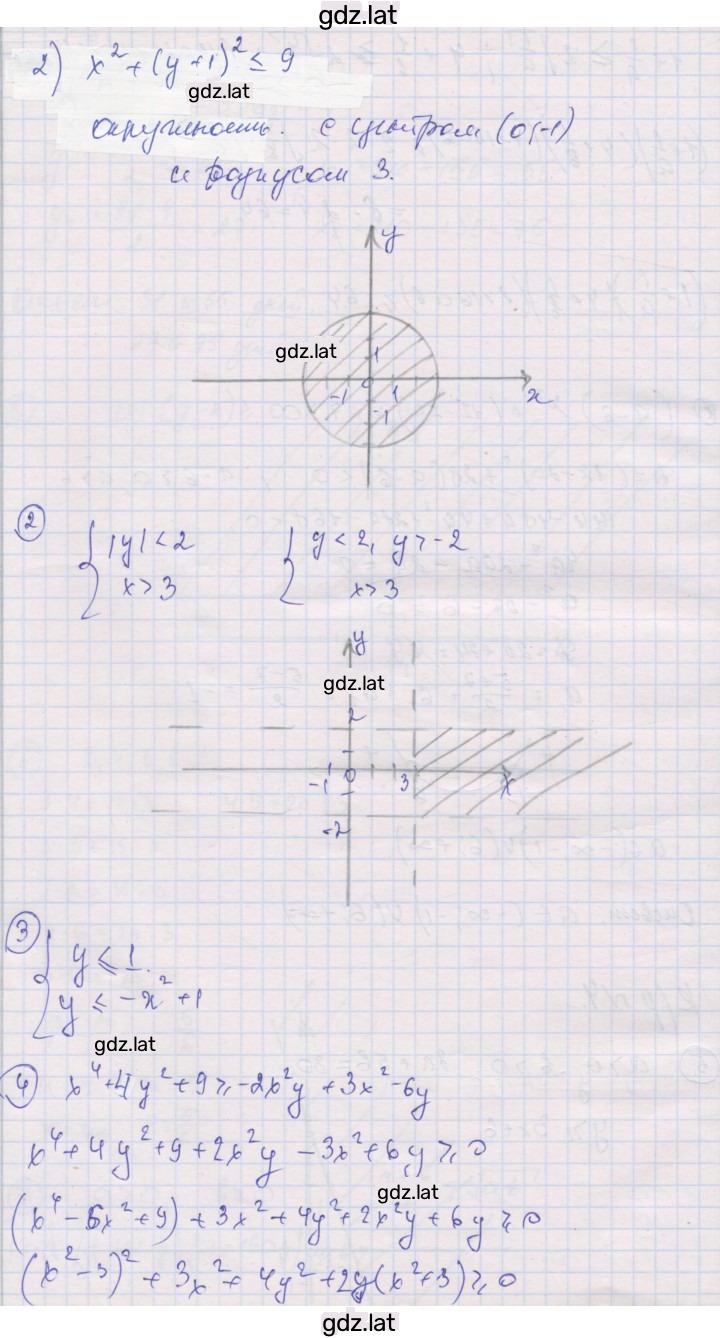 gdz.lat
2) x² + (y+1)² ≤ 9
gdz.lat
окружность. с центром (0;-1)
и радиусом 3.
y
gdz.lat
1
0
-1 1 x
-1
2
{ |y| < 2 { y < 2, y > -2
x > 3 x > 3
y
gdz.lat
2
-1 0 3 x
-2
3
{ y ≤ 1.
y ≤ -x² + 1
gdz.lat
4 x⁴ + 4y² + 9 ≥ -2x²y + 3x² - 6y
x⁴ + 4y² + 9 + 2x²y - 3x² + 6y ≥ 0
gdz.lat
(x⁴ - 6x² + 9) + 3x² + 4y² + 2x²y + 6y ≥ 0
(x² - 3)² + 3x² + 4y² + 2y(x² + 3) ≥ 0
gdz.lat